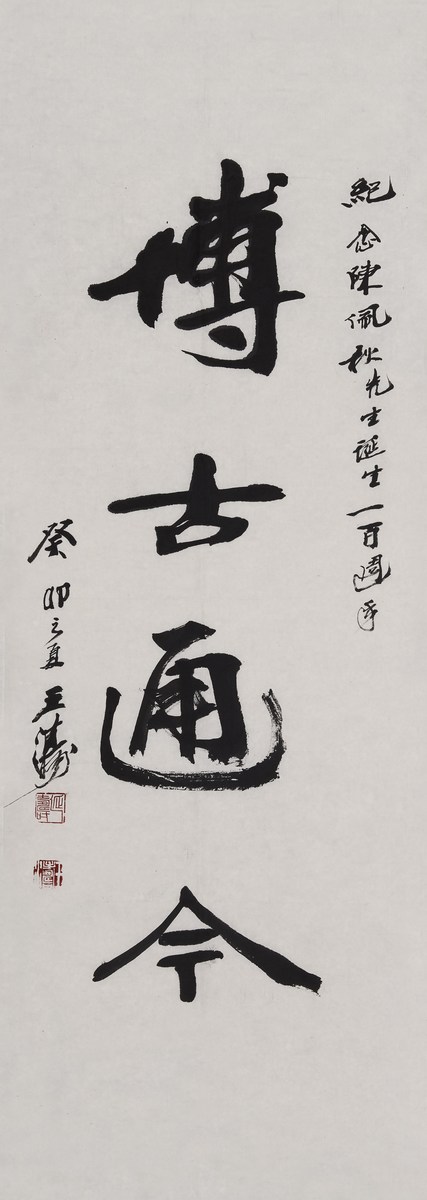 紀念陳佩秋先生誕生一百週年
博古通今
癸卯之夏